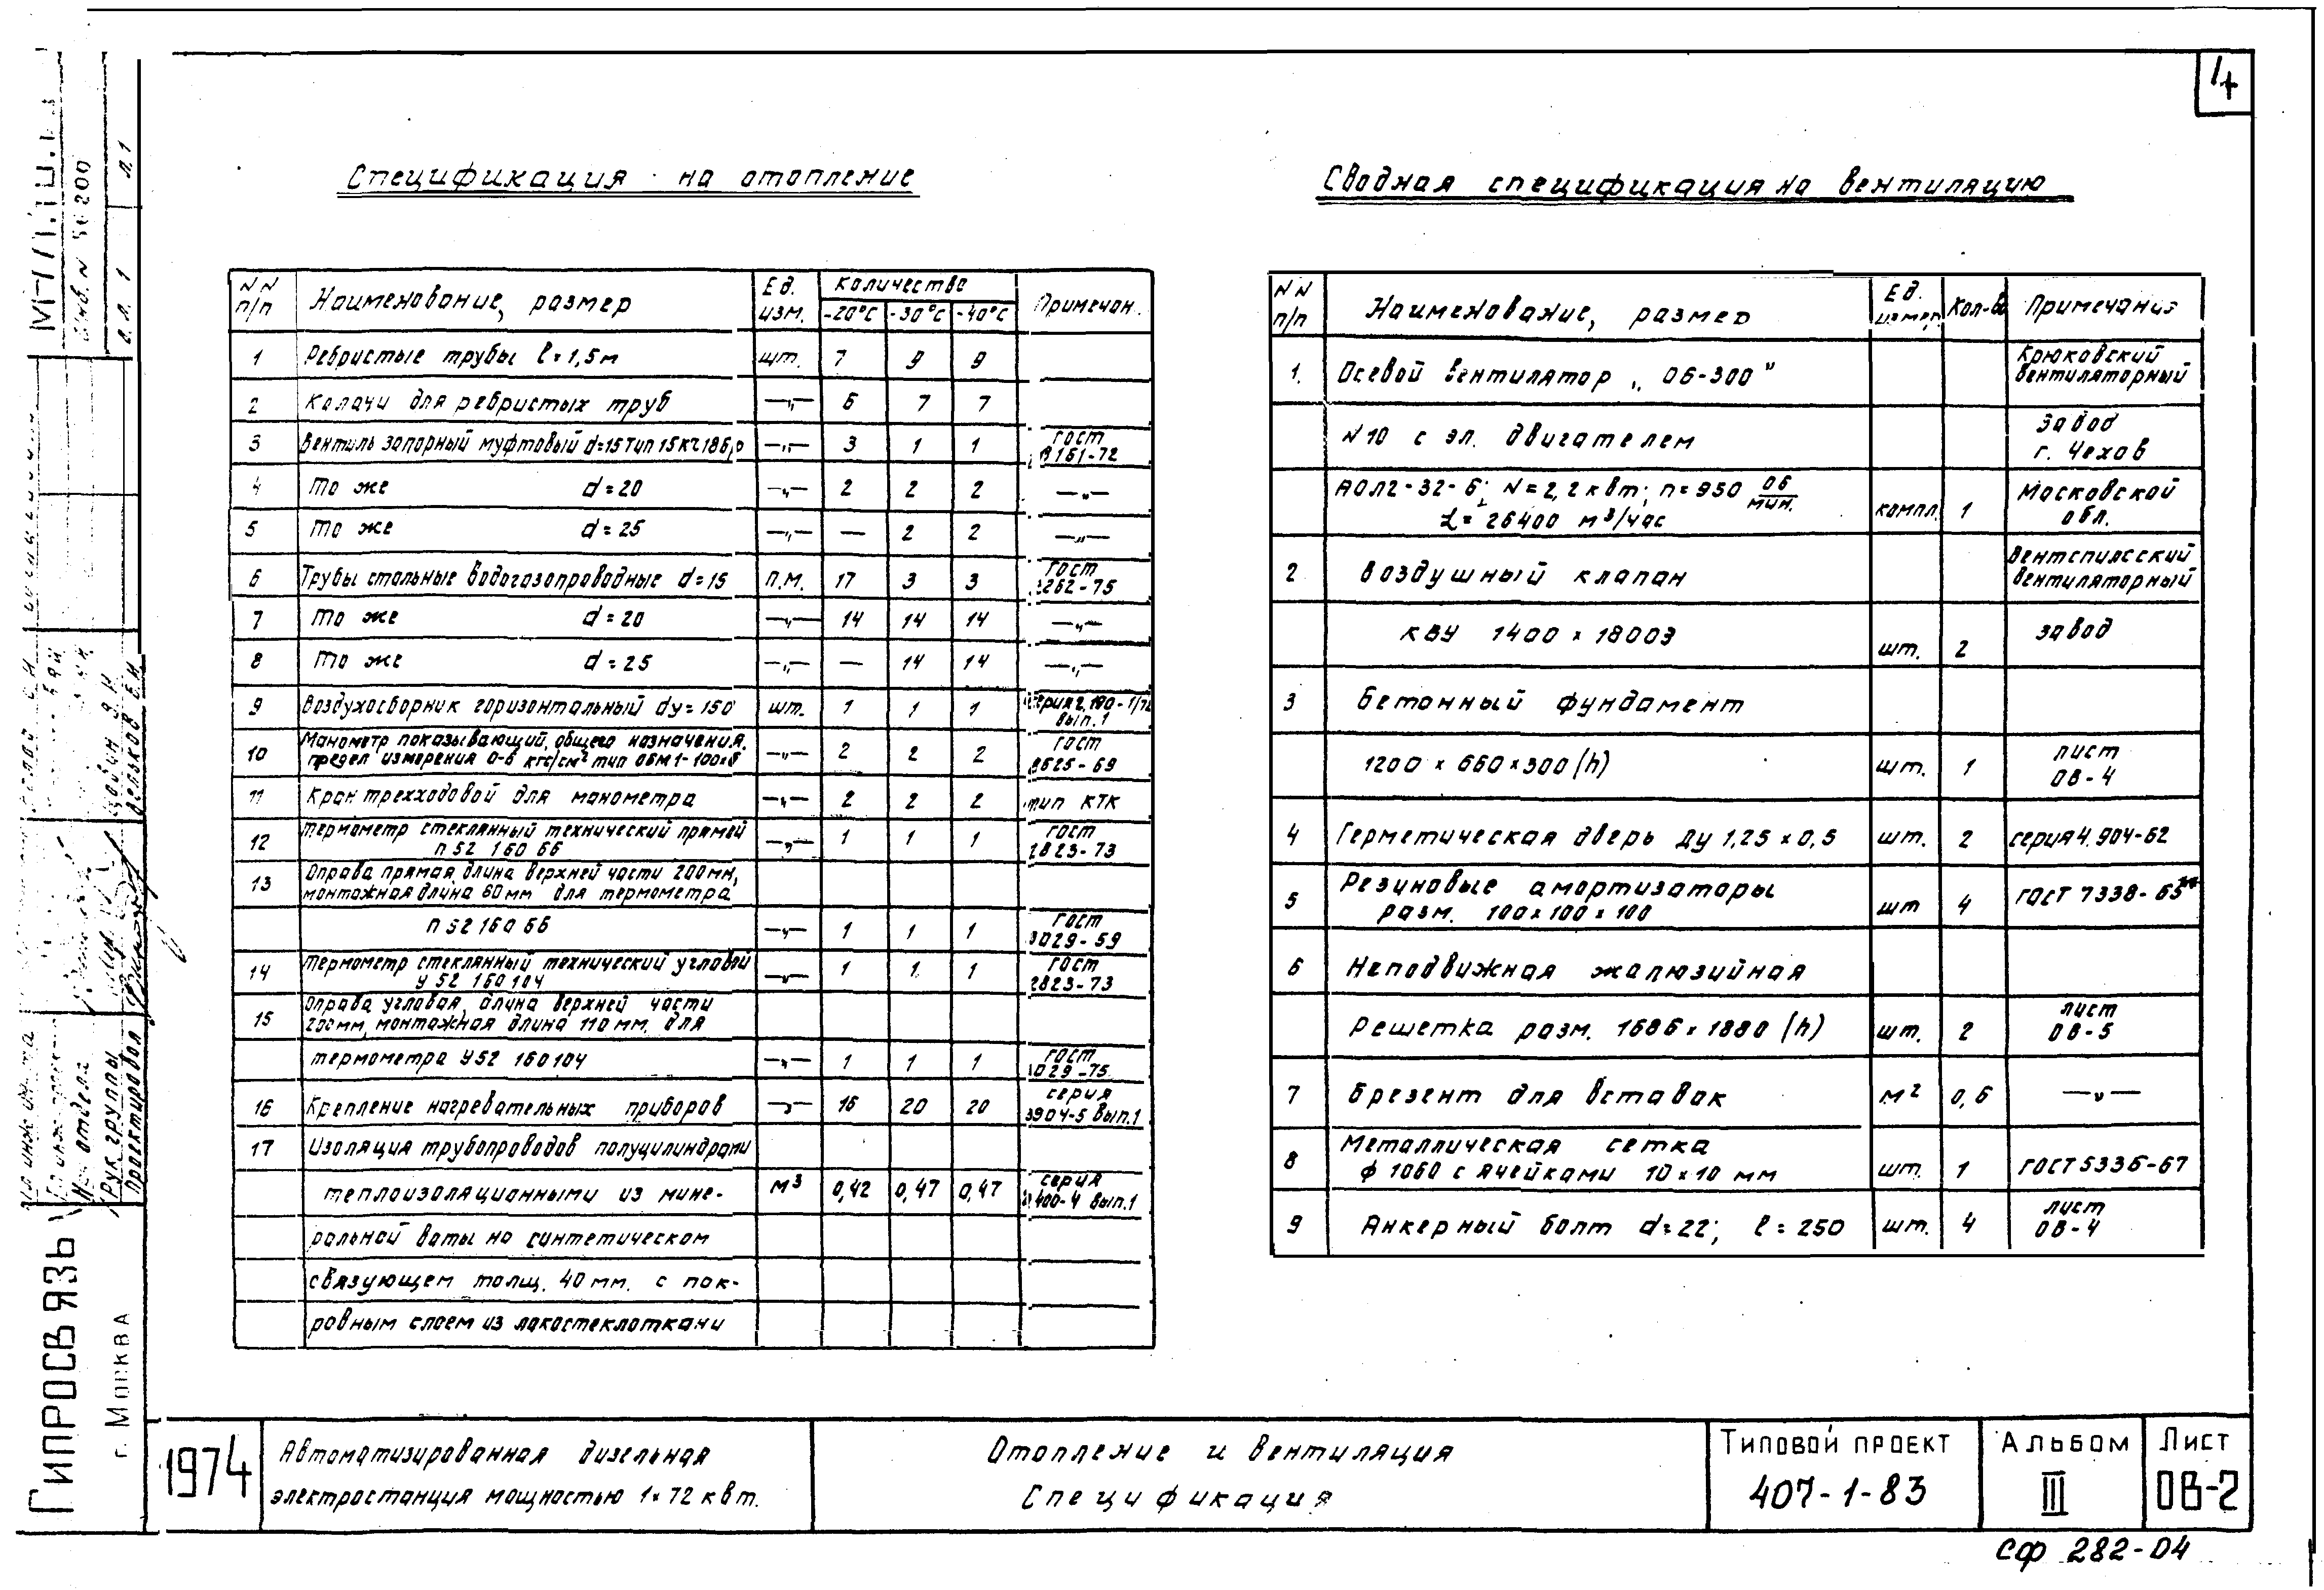 4
Спецификация на отопление
NN п/п Наименование, размер Ед. изм. Количество -20°С -30°С -40°С Примечан.
1 Ребристые трубы l=1,5м шт. 7 9 9
2 Калачи для ребристых труб —„— 6 7 7
3 Вентиль запорный муфтовый d=15 тип 15кч18бр —„— 3 1 1 ГОСТ 161-72
4 То же d=20 —„— 2 2 2 —„—
5 То же d=25 —„— — 2 2 —„—
6 Трубы стальные водогазопроводные d=15 п.м. 17 3 3 ГОСТ 3262-75
7 То же d=20 —„— 14 14 14 —„—
8 То же d=25 —„— — 14 14 —„—
9 Воздухосборник горизонтальный dу=150 шт. 1 1 1 вып.1
10 Манометр показывающий, общего назначения,
предел измерения 0-6 кгс/см² тип ОБМ1-100х6 —„— 2 2 2 ГОСТ 8625-69
11 Кран трехходовой для манометра —„— 2 2 2 тип КТК
12 Термометр стеклянный технический прямой
П 52 160 66 —„— 1 1 1 ГОСТ 2823-73
13 Оправа прямая, длина верхней части 200мм,
монтажная длина 60мм для термометра
П 52 160 66 —„— 1 1 1 ГОСТ 3029-59
14 Термометр стеклянный технический угловой
У 52 160 104 —„— 1 1 1 ГОСТ 2823-73
15 Оправа угловая, длина верхней части
200мм, монтажная длина 110 мм. для
термометра У52 160104 —„— 1 1 1 ГОСТ 3029-75
16 Крепление нагревательных приборов —„— 16 20 20 серия 3904-5 вып.1
17 Изоляция трубопроводов полуцилиндрами
теплоизоляционными из мине- м³ 0,42 0,47 0,47 серия 400-4 вып.1
ральной ваты на синтетическом
связующем толщ. 40мм. с пок-
ровным слоем из лакостеклоткани
Сводная спецификация на вентиляцию
NN п/п Наименование, размер Ед. измер. Кол-во Примечания
1. Осевой вентилятор „06-300" Крюковский вентиляторный
N10 с эл. двигателем завод г. Чехов
АОЛ2-32-6; N=2,2квт; n=950 об/мин. Московской
L=26400 м³/час компл. 1 обл.
2 Воздушный клапан Вентспилсский вентиляторный
КВУ 1400 х 1800Э шт. 2 завод
3 Бетонный фундамент
1200 х 660х300 (h) шт. 1 лист ОВ-4
4 Герметическая дверь Ду 1,25 х 0,5 шт. 2 серия 4.904-62
5 Резиновые амортизаторы
разм. 100х100х100 шт 4 ГОСТ 7338-65**
6 Неподвижная жалюзийная
решетка разм. 1686х1880 (h) шт. 2 лист ОВ-5
7 Брезент для вставок м² 0,6 —„—
8 Металлическая сетка
ф 1060 с ячейками 10х10 мм шт. 1 ГОСТ 5336-67
9 Анкерный болт d=22; l=250 шт. 4 лист ОВ-4
1974
Автоматизированная дизельная
электростанция мощностью 1х72квт.
Отопление и вентиляция
Спецификация
Типовой проект
407-1-83
Альбом
III
Лист
ОВ-2
СФ 282-04
Гипросвязь
г. Москва
Нач отдела
Рук группы
Проектировал